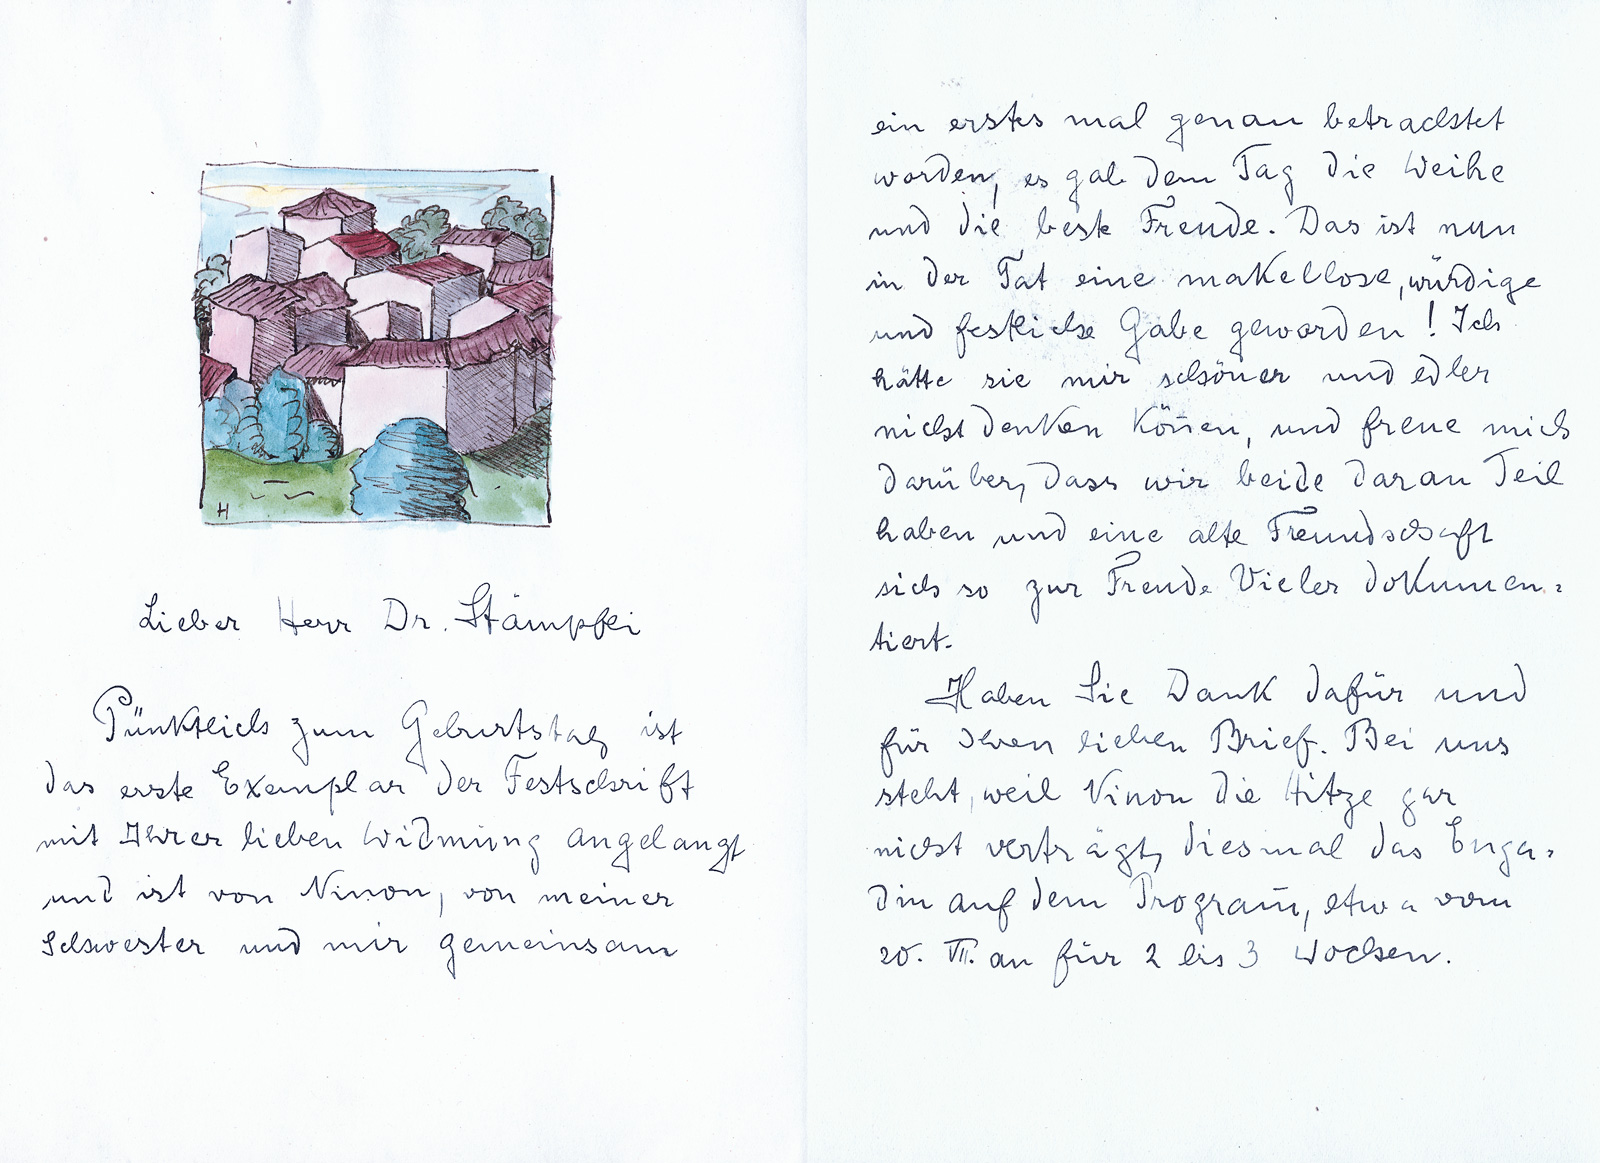 H
Lieber Herr Dr. Stämpfli
Pünktlich zum Geburtstag ist
das erste Exemplar der Festschrift
mit Ihrer lieben Widmung angelangt
und ist von Ninon, von meiner
Schwester und mir gemeinsam
ein erstes mal genau betrachtet
worden, es gab dem Tag die Weihe
und die beste Freude. Das ist nun
in der Tat eine makellose, würdige
und festliche Gabe geworden! Ich
hätte sie mir schöner und edler
nicht denken kön̄en, und freue mich
darüber, dass wir beide daran Teil
haben und eine alte Freundschaft
sich so zur Freude Vieler dokumen=
tiert.
Haben Sie Dank dafür und
für Ihren lieben Brief. Bei uns
steht, weil Ninon die Hitze gar
nicht verträgt, diesmal das Enga=
din auf dem Program̄, etwa vom
20. VII. an für 2 bis 3 Wochen.